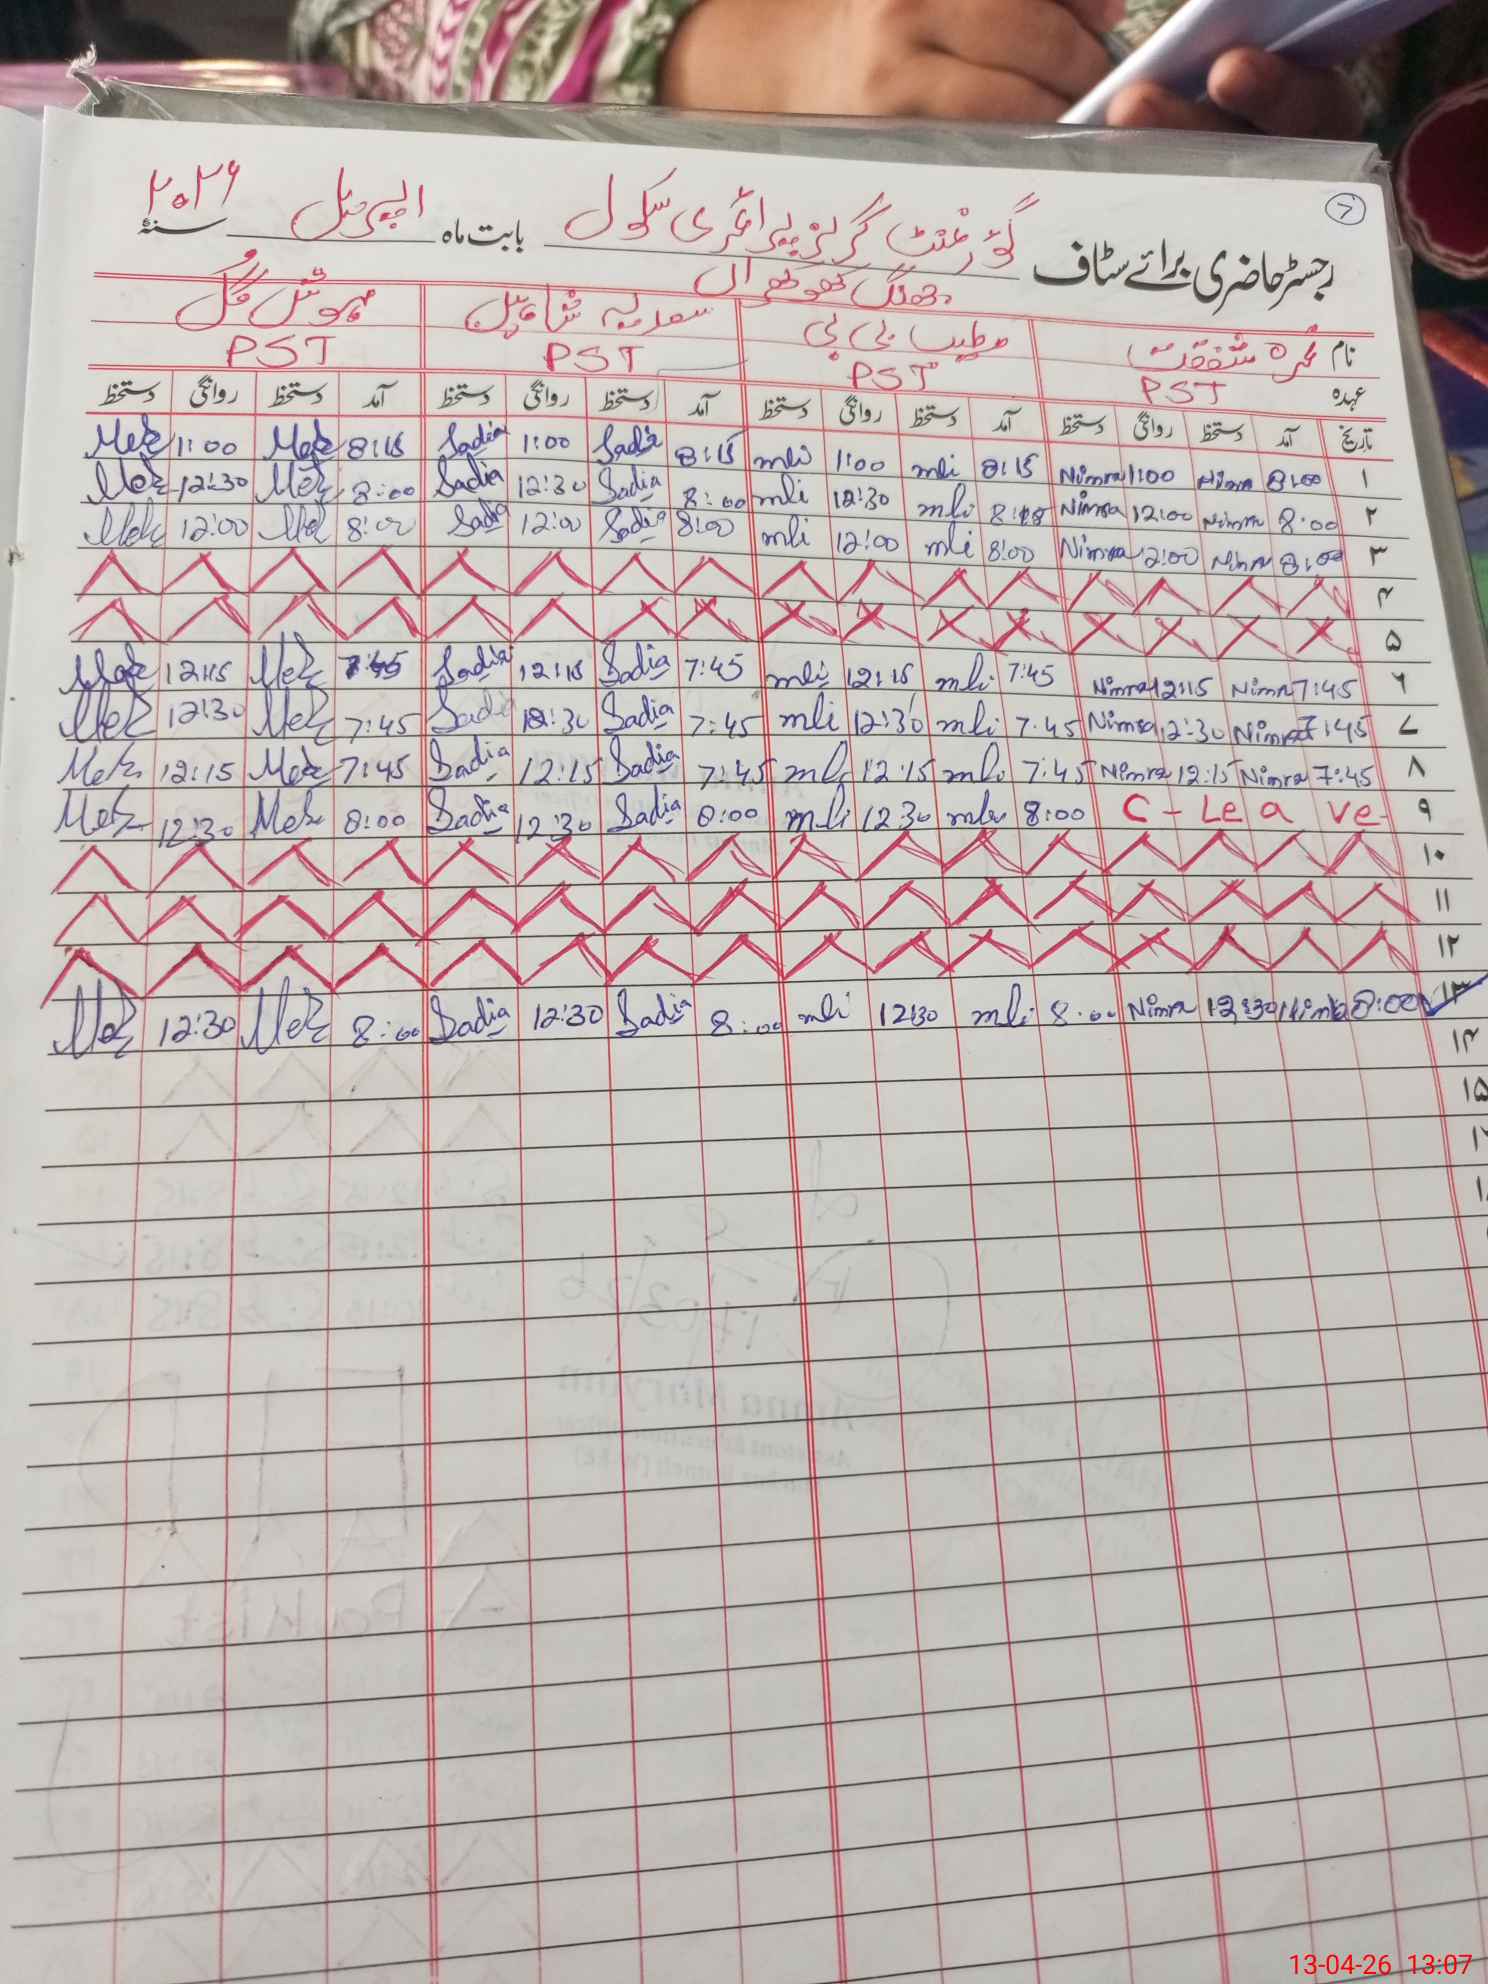 ۷
رجسٹر حاضری برائے سٹاف گورنمنٹ گرلز پرائمری سکول بابت ماہ اپریل سنۂ ۲۰۲۶
جھنگ کھوکھراں
نام نمرہ شفقت طیبہ بی بی سعدیہ شاہین مہوش گل
عہدہ PST PST PST PST
تاریخ آمد دستخط روانگی دستخط آمد دستخط روانگی دستخط آمد دستخط روانگی دستخط آمد دستخط روانگی دستخط
۱ 8:00 Nimra 1:00 Nimra 8:15 mli 1:00 mli 8:15 Sadia 1:00 Sadia 8:15 11:00
۲ 8:00 Nimra 12:00 Nimra mli 12:30 mli 8:00 Sadia 12:30 Sadia 8:00 12:30
۳ 8:00 Nimra 12:00 Nimra 8:00 mli 12:00 mli 8:00 Sadia 12:00 Sadia 8:00 12:00
۴
۵
۶ 7:45 Nimra 12:15 Nimra 7:45 mli 12:15 mli 7:45 Sadia 12:15 Sadia 7:45 12:15
۷ 7:45 Nimra 12:30 Nimra 7:45 mli 12:30 mli 7:45 Sadia 12:30 Sadia 7:45 12:30
۸ 7:45 Nimra 12:15 Nimra 7:45 mli 12:15 mli 7:45 Sadia 12:15 Sadia 7:45 12:15
۹ C-Leave 8:00 mli 12:30 mli 8:00 Sadia 12:30 Sadia 8:00 12:30
۱۰
۱۱
۱۲
۱۳ 8:00 Nimra 12:30 Nimra 8:00 mli 12:30 mli 8:00 Sadia 12:30 Sadia 8:00 12:30
۱۴
۱۵
13-04-26 13:07